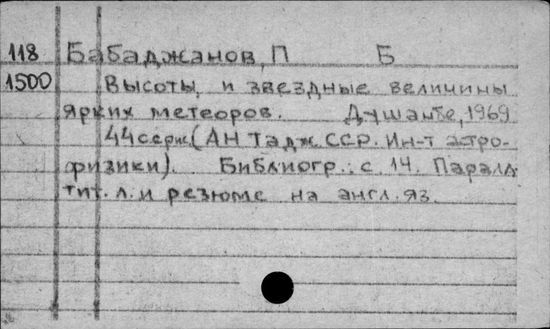 118 Бабаджанов, П Б
1500 Высоты и звездные величины
ярких метеоров. Душанбе, 1969
44с. (АН Тадж. ССР. Ин-т астро-
физики). Библиогр.: с. 14. Паралл
тит. л. и резюме на англ. яз.